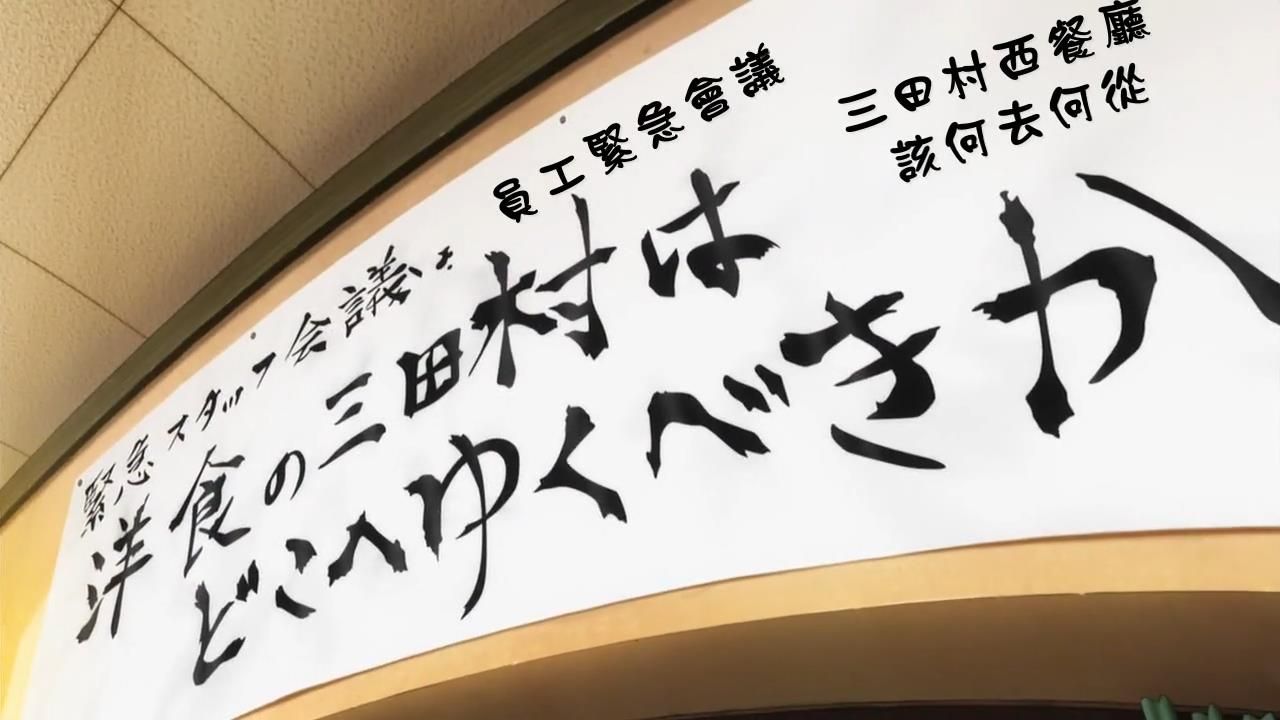 員工緊急會議
三田村西餐廳
該何去何從
緊急スタッフ会議:
洋食の三田村は
どこへゆくべきか